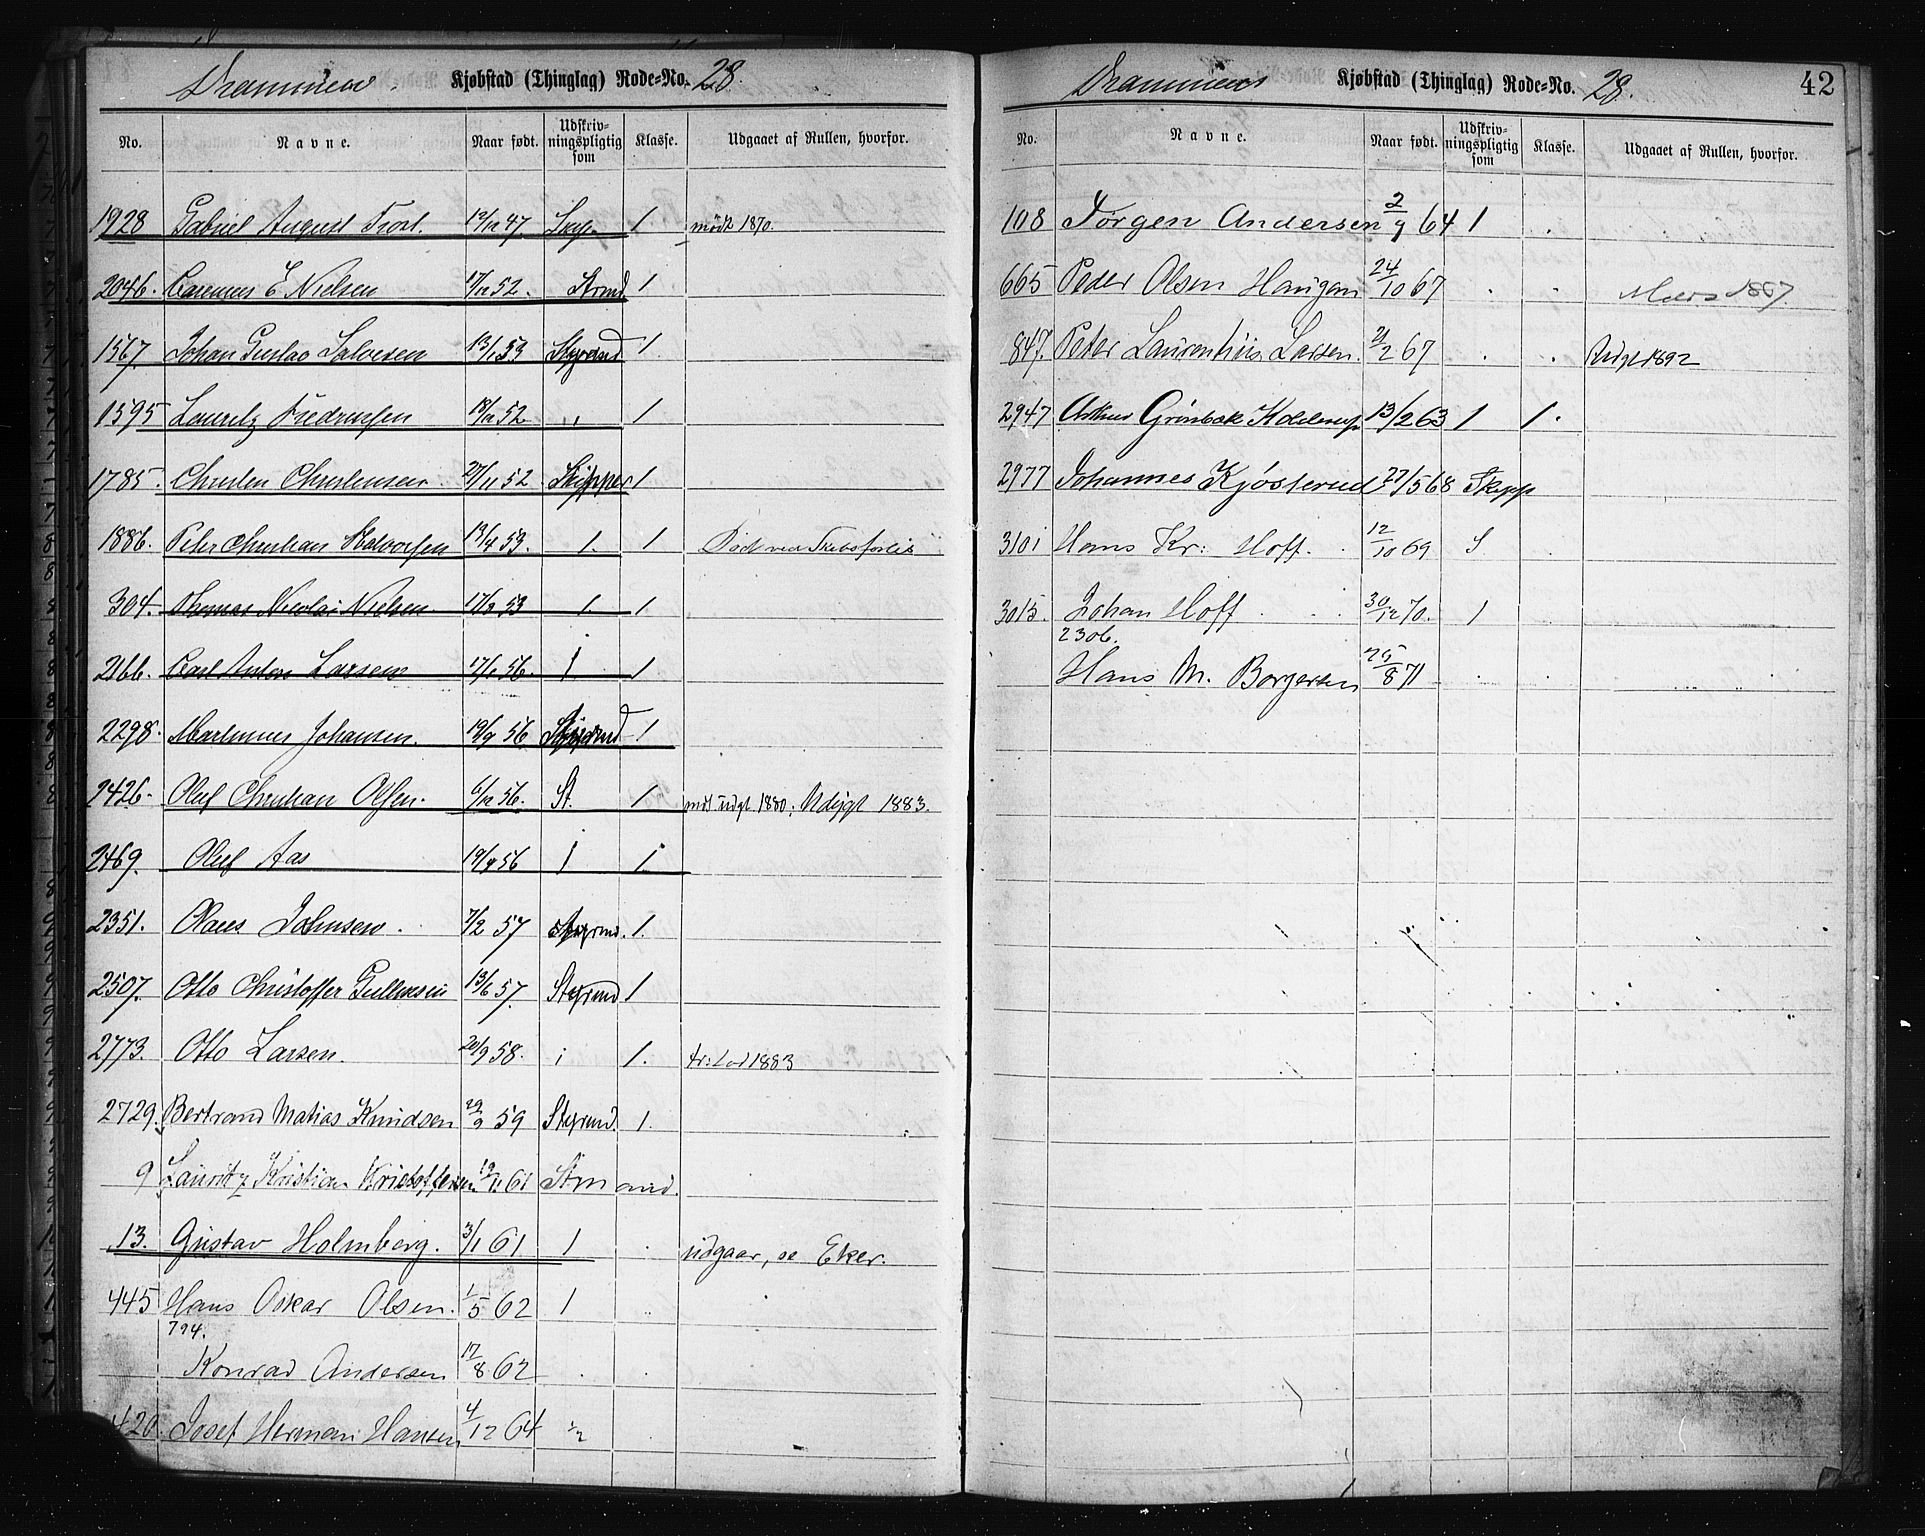 Drammen. Kjøbstad (Thinglag) Rode=No. 28.
No. Navne. Naar født. Udskriv-ningspligtig som Klasse. Udgaaet af Rullen, hvorfor.
1928 Gabriel August 12/12 47 1. mødt 1870.
2046. E Nielsen 17/12 52. Strmd 1.
1567. Johan Gustav Salvesen 13/1 53 Styrmd 1.
1595 Lauritz Fredriksen 18/12 52 " 1
1785. Christen Christensen 27/11 52 Skipper 1
1886. Peter Christian Halvorsen 19/4 53. 1. 1 Død ved Skibsforlis
304. Thomas Nicolai Nielsen 17/3 53 1. 1
2166. Carl Anton Larsen 17/1 56. 1 1
2298. Martinus Johansen. 19/9 56 Styrmd 1
2426. Oluf Christian Olsen. 6/12 56. St. 1 udgt 1880. Udygt 1883.
2469. Oluf Aas 19/4 56 1 1
2351. Claus Johnsen. 7/2 57 Styrmd. 1.
2507. Otto Christoffer Gullicksen 13/6 57. Styrmd 1
2773. Otto Larsen. 20/9 58. i 1. fr: Lod 1883
2729. Bertrand Matias Knudsen 29/9 59 Styrmd. 1.
9 Lauritz Kristian Kristoffersen 19/11 61 Strmand.
13. Gustav Holmberg. 3/1 61 1 udgaar, se Eker.
445 Hans Oskar Olsen. 1/5 62 1
794.
Konrad Andersen 17/8 62
420. Josef Herman Hansen 4/12 64 "
Drammen Kjøbstad (Thinglag) Rode=No. 28. 42
No. Navne. Naar født. Udskriv-ningspligtig som Klasse. Udgaaet af Rullen, hvorfor.
108 Jørgen Andersen 2/9 64 1 .
665 Peder Olsen Haugan 24/10 67 . . 1887
847. Peter Laurentius Larsen. 2/2 67 . . Udgt 1892
2947 Grønbek Kolderup 13/2 63 1 1.
2977 Johannes Kjøsterud 27/5 68 Skipp
3101 Hans Kr: Hoff. 12/10 69 S
3015. Johan Hoff 30/12 70. 1
2306.
Hans M. Borgersen 25/8 71 .